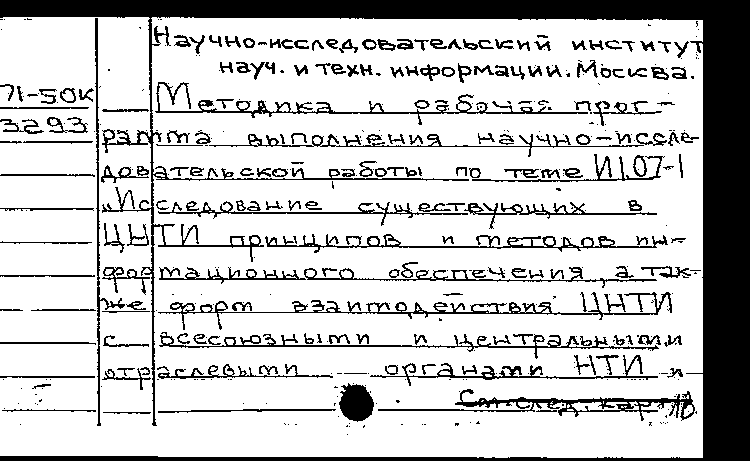 Научно-исследовательский институт
науч. и техн. информации. Москва.
71-50к
Методика и рабочая прог-
3293
рамма выполнения научно-иссле-
довательской работы по теме И1.07-1
„Исследование существующих в
ЦНТИ принципов и методов ин-
формационного обеспечения, а так-
же форм взаимодействия ЦНТИ
с всесоюзными и центральными
отраслевыми органами НТИ и
См. след. карт.